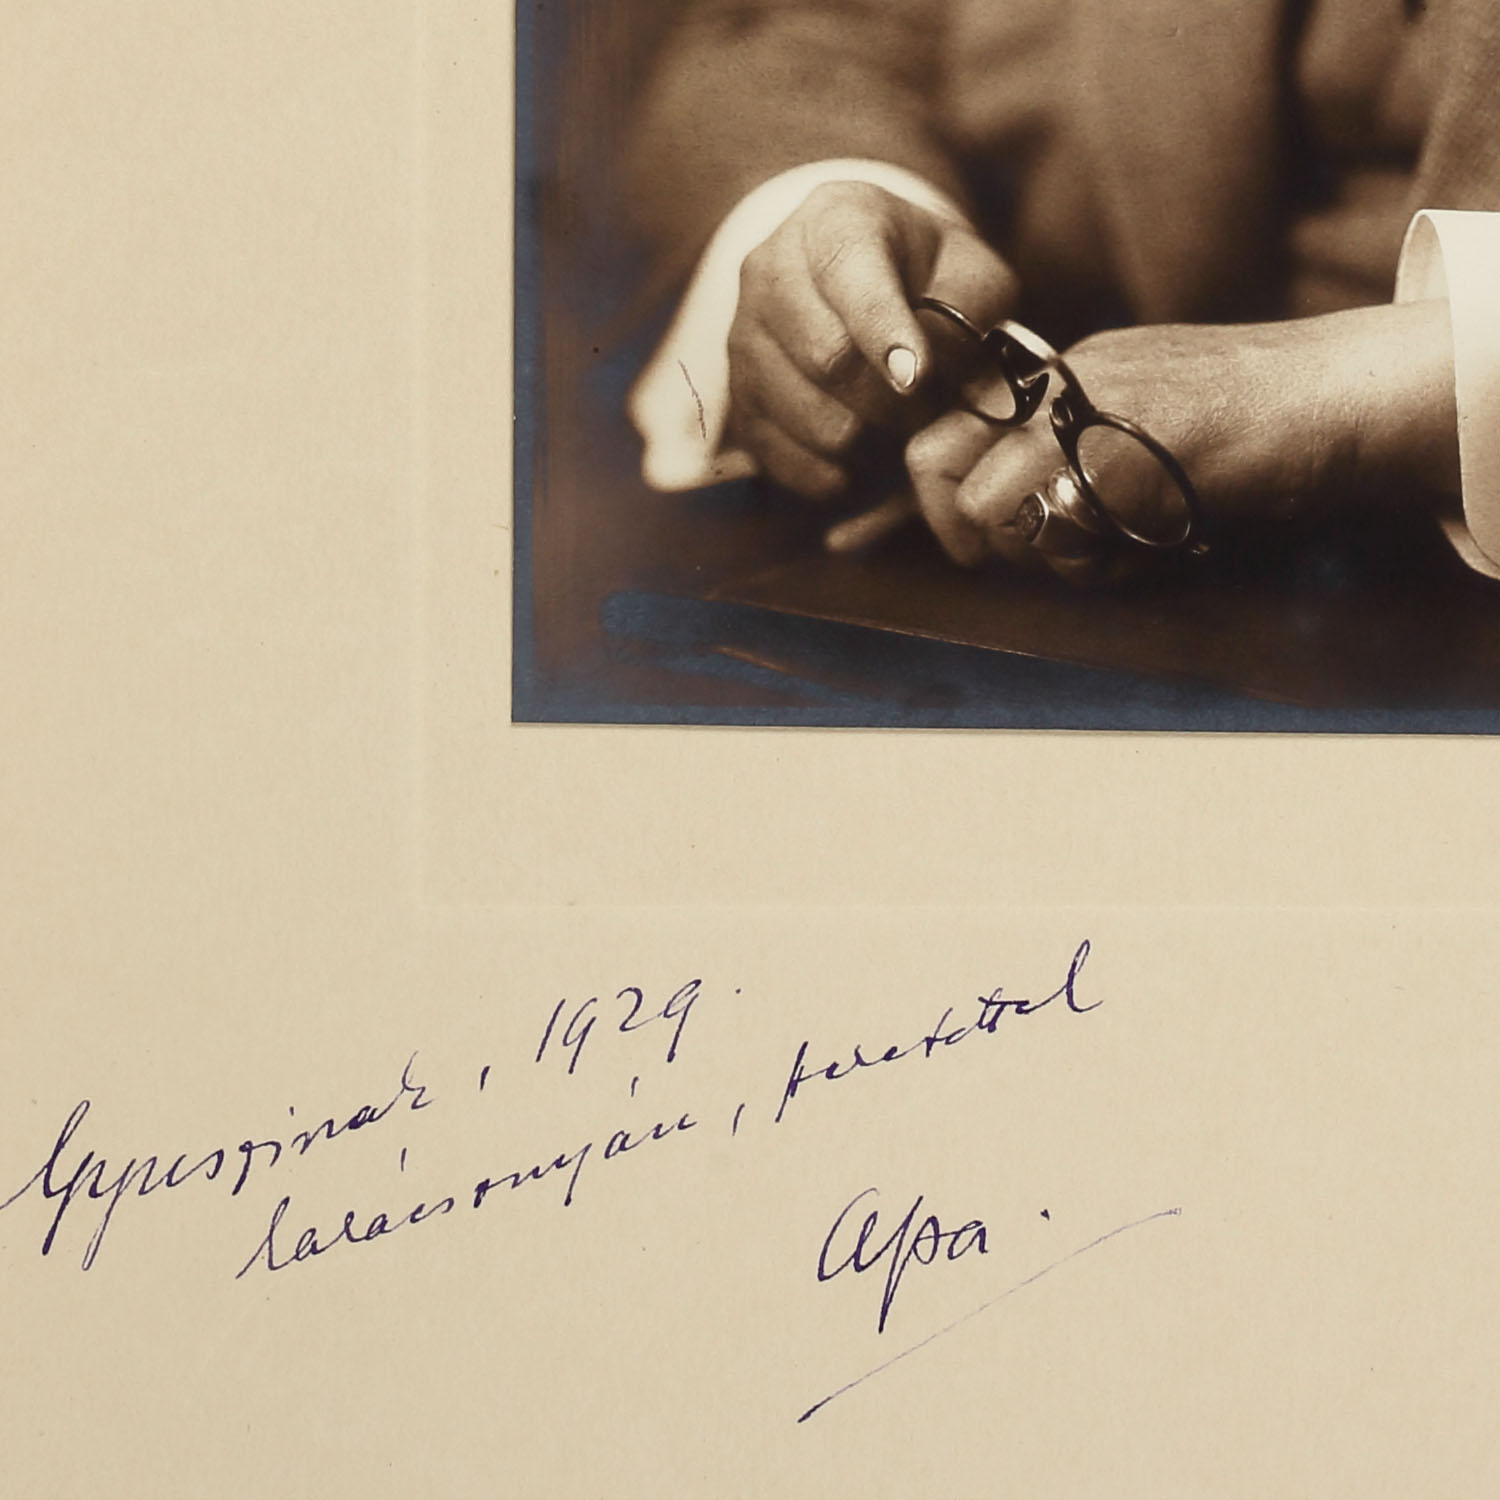 Ippuszinak, 1929.
karácsonyán, szeretettel
Apa.